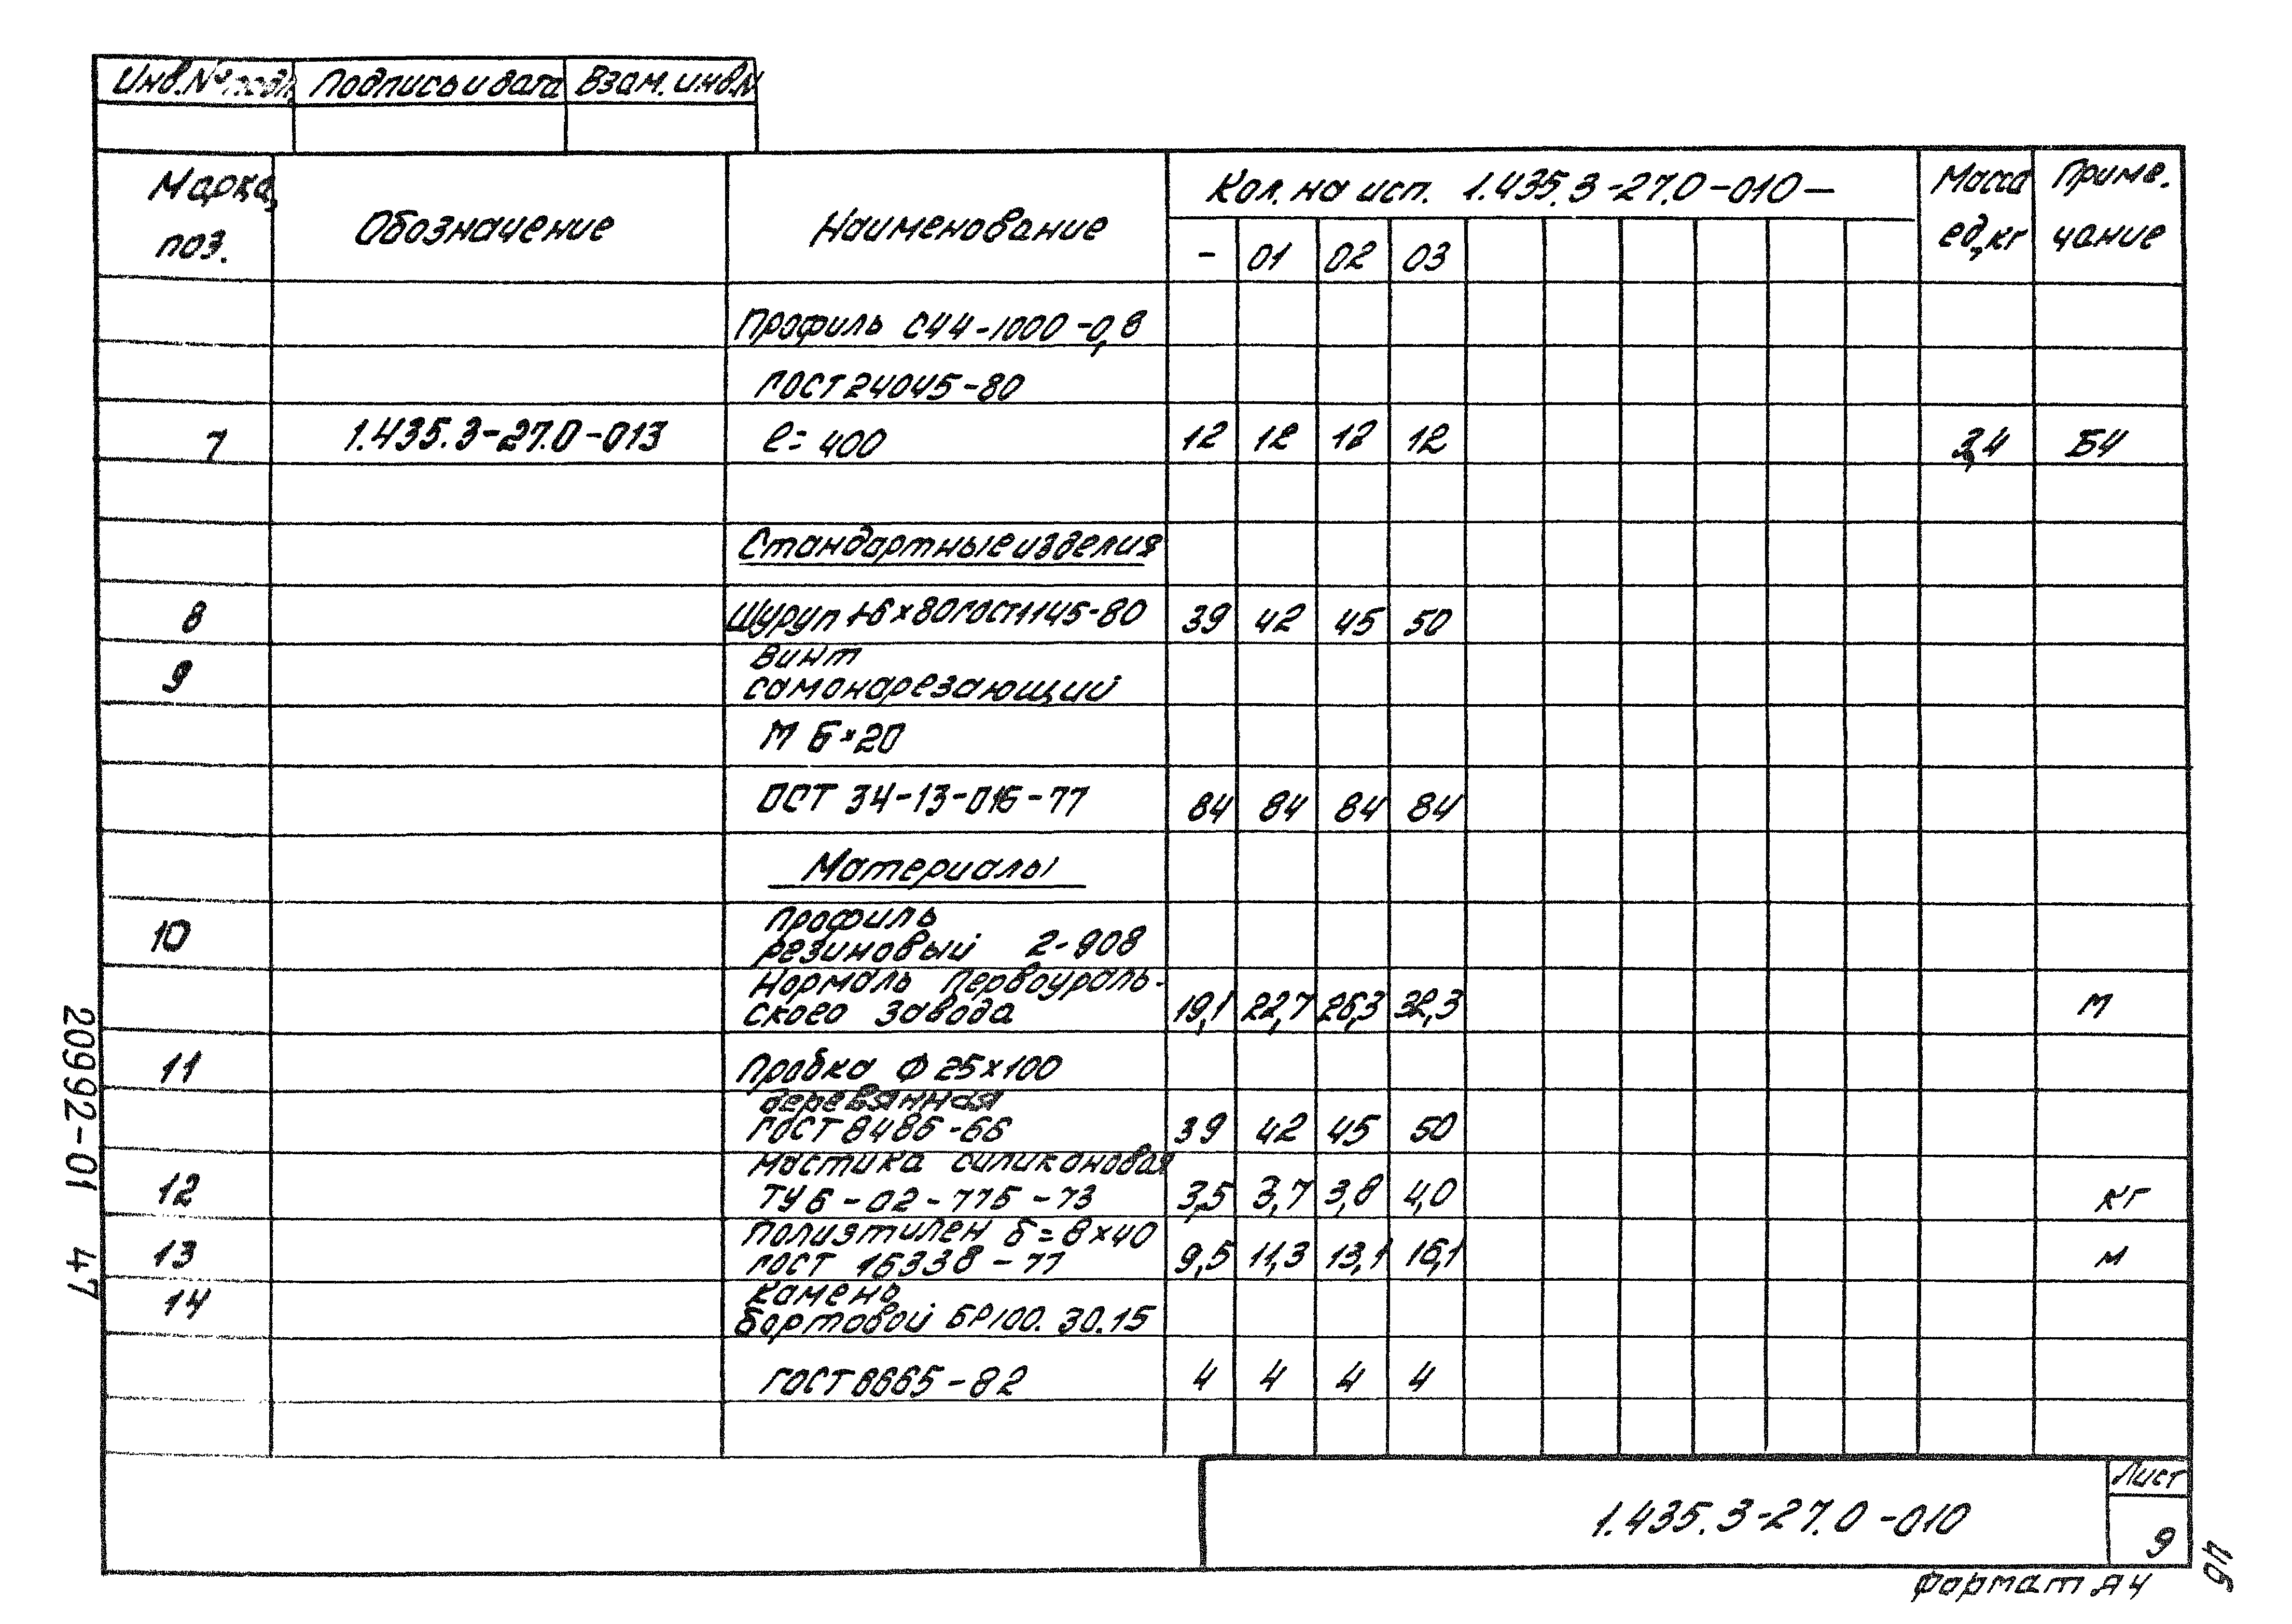 Инв.№ подл. Подпись и дата Взам. инв.№
Марка, поз. Обозначение Наименование Кол. на исп. 1.435.3-27.0-010- Масса ед,кг Приме. чание
- 01 02 03
Профиль С44-1000-0,8
ГОСТ 24045-80
7 1.435.3-27.0-013 ℓ=400 12 12 12 12 3,4 БЧ
Стандартные изделия
8 Шуруп 1-6×80 ГОСТ 1145-80 39 42 45 50
9 Винт
самонарезающий
М 6×20
ОСТ 34-13-016-77 84 84 84 84
Материалы
10 Профиль
резиновый 2-908
Нормаль Первоураль-
ского завода 19,1 22,7 26,3 32,3 м
11 Пробка Ф 25×100
деревянная
ГОСТ 8486-66 39 42 45 50
Мастика силиконовая
12 ТУ 6-02-775-73 3,5 3,7 3,8 4,0 кг
Полиэтилен δ=8×40
13 ГОСТ 16338-77 9,5 11,3 13,1 16,1 м
14 Камень
бортовой БР100.30.15
ГОСТ 6665-82 4 4 4 4
1.435.3-27.0-010
Лист
9
Формат А4
20992-01 47
46